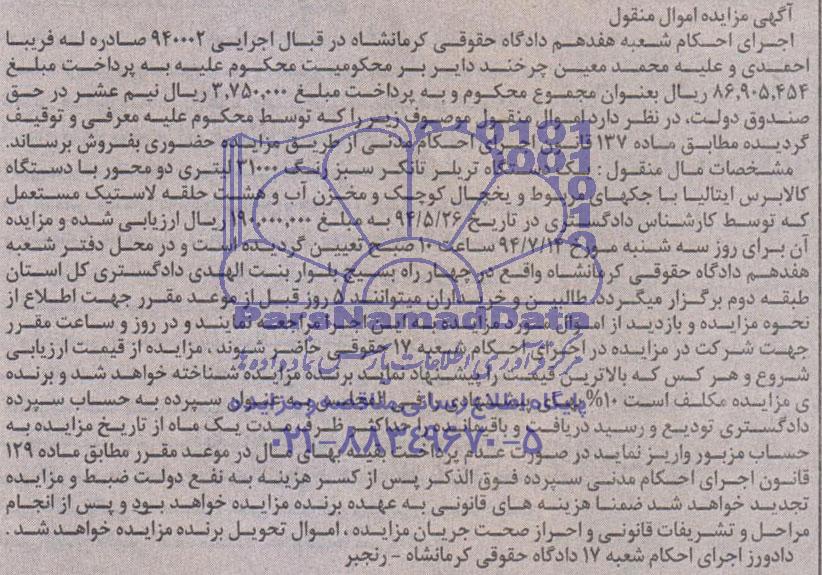 آگهی مزایده اموال منقول
اجرای احکام شعبه هفدهم دادگاه حقوقی کرمانشاه در قبال اجرایی ۹۴۰۰۰۲ صادره له فریبا
احمدی و علیه محمد معین چرخند دایر بر محکومیت محکوم علیه به پرداخت مبلغ
۸۶,۹۰۵,۴۵۴ ریال بعنوان مجموع محکوم و به پرداخت مبلغ ۳,۷۵۰,۰۰۰ ریال نیم عشر در حق
صندوق دولت، در نظر دارد اموال منقول موصوف زیر را که توسط محکوم علیه معرفی و توقیف
گردیده مطابق ماده ۱۳۷ قانون اجرای احکام مدنی از طریق مزایده حضوری بفروش برساند.
مشخصات مال منقول : یک دستگاه تریلر تانکر سبز رنگ ۳۱۰۰۰ لیتری دو محور با دستگاه
کالابرس ایتالیا با جکهای مربوط و یخچال کوچک و مخزن آب و هشت حلقه لاستیک مستعمل
که توسط کارشناس دادگستری در تاریخ ۹۴/۵/۲۶ به مبلغ ۱۹۰,۰۰۰,۰۰۰ ریال ارزیابی شده و مزایده
آن برای روز سه شنبه مورخ ۹۴/۷/۱۴ ساعت ۱۰ صبح تعیین گردیده است و در محل دفتر شعبه
هفدهم دادگاه حقوقی کرمانشاه واقع در چهار راه بسیج بلوار بنت الهدی دادگستری کل استان
طبقه دوم برگزار میگردد. طالبین و خریداران میتوانند ۵ روز قبل از موعد مقرر جهت اطلاع از
نحوه مزایده و بازدید از اموال مورد مزایده به این اجرا مراجعه نمایند و در روز و ساعت مقرر
جهت شرکت در مزایده در اجرای احکام شعبه ۱۷ حقوقی حاضر شوند ، مزایده از قیمت ارزیابی
شروع و هر کس که بالاترین قیمت را پیشنهاد نماید برنده مزایده شناخته خواهد شد و برنده
ی مزایده مکلف است ۱۰% بهای پیشنهادی را فی المجلس به عنوان سپرده به حساب سپرده
دادگستری تودیع و رسید دریافت و باقیمانده را حداکثر ظرف مدت یک ماه از تاریخ مزایده به
حساب مزبور واریز نماید در صورت عدم پرداخت بقیه بهای مال در موعد مقرر مطابق ماده ۱۲۹
قانون اجرای احکام مدنی سپرده فوق الذکر پس از کسر هزینه به نفع دولت ضبط و مزایده
تجدید خواهد شد ضمنا هزینه های قانونی به عهده برنده مزایده خواهد بود و پس از انجام
مراحل و تشریفات قانونی و احراز صحت جریان مزایده ، اموال تحویل برنده مزایده خواهد شد .
دادورز اجرای احکام شعبه ۱۷ دادگاه حقوقی کرمانشاه - رنجبر
ParsNamadData
پایگاه اطلاع رسانی مناقصه و مزایده
۰۲۱-۸۸۳۴۹۶۷۰-۵